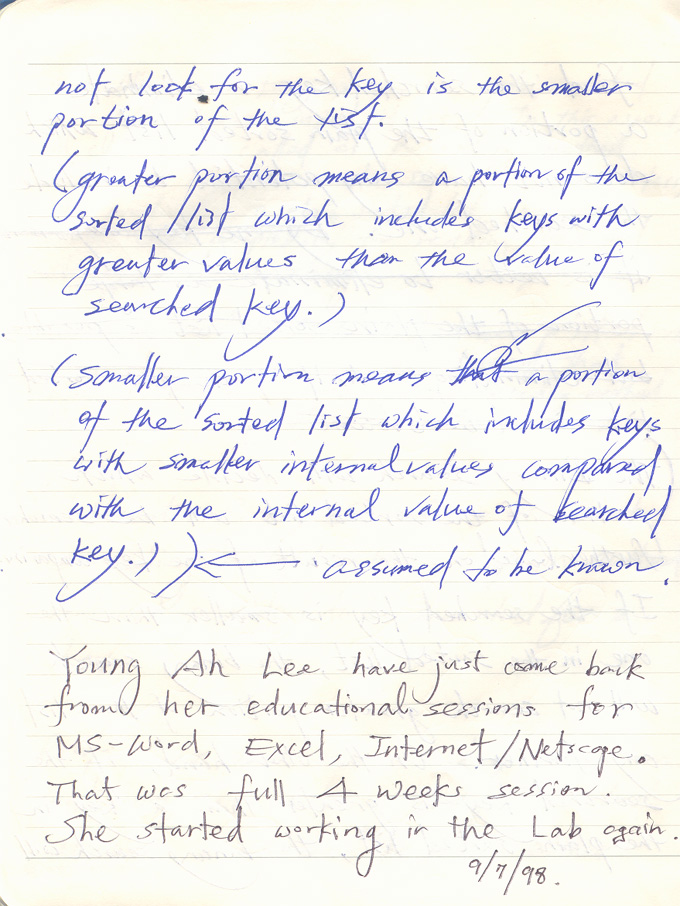 not look for the key is the smaller
portion of the list.
(greater portion means a portion of the
sorted list which includes keys with
greater values than the value of
searched key.)
(smaller portion means a portion
of the sorted list which includes keys
with smaller internal values compared
with the internal value of searched
key.) ) ← assumed to be known.
Young Ah Lee have just come back
from her educational sessions for
MS-Word, Excel, Internet/Netscape.
That was full 4 weeks session.
She started working in the Lab again.
9/7/98.